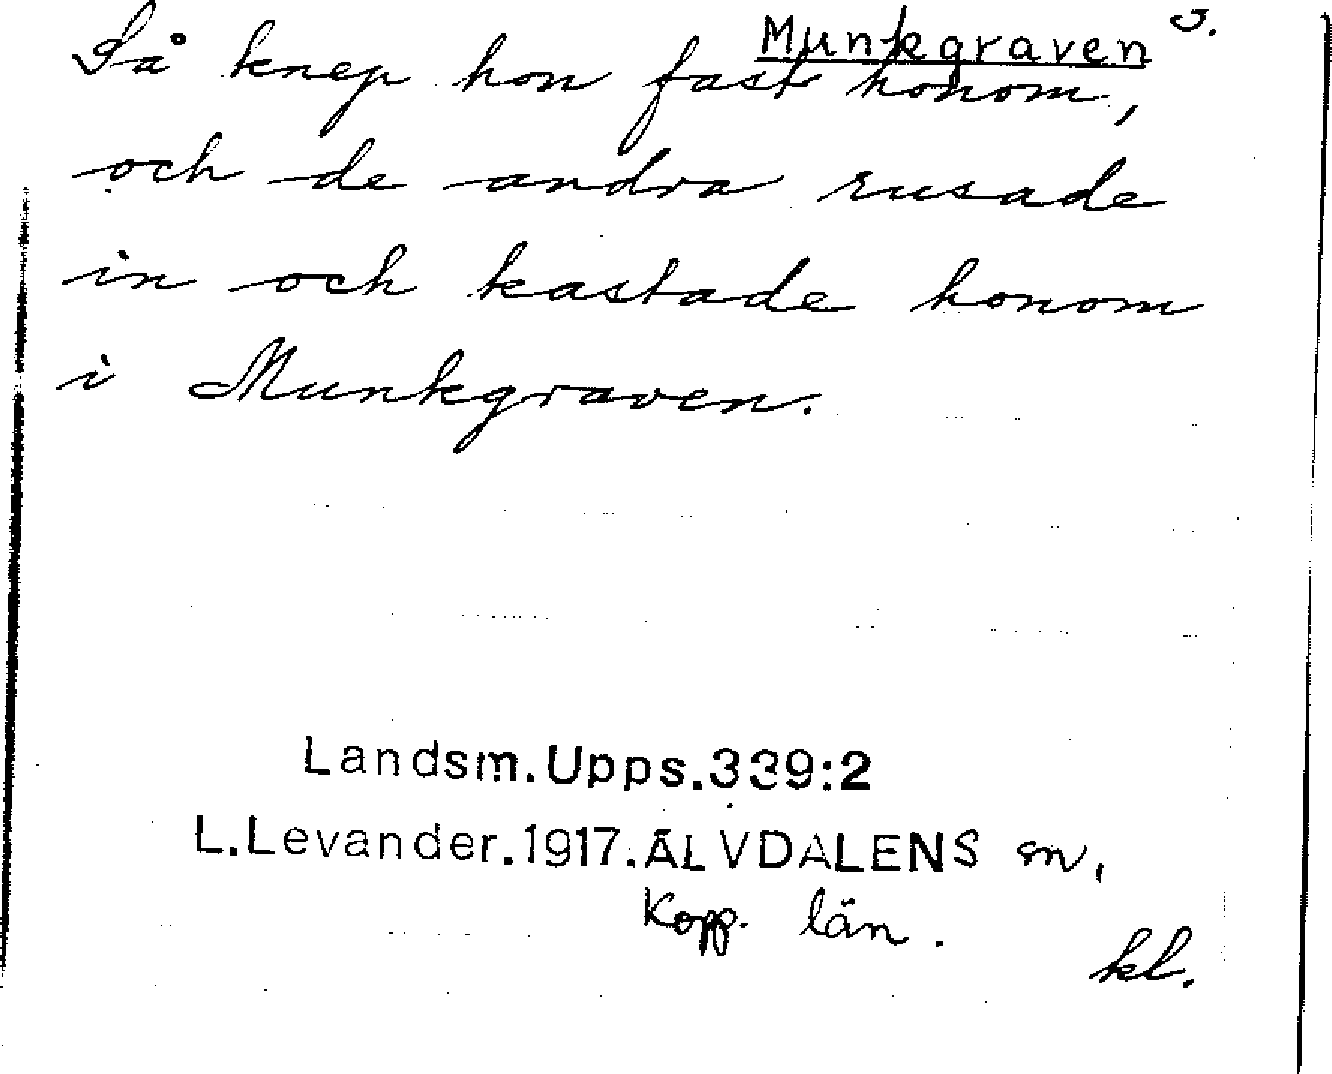 Munkgraven 3.
Så knep hon fast honom,
och de andra rusade
in och kastade honom
i Munkgraven.
Landsm.Upps.339:2
L.Levander.1917.ÄLVDALENS sn,
Kopp. län.
kl.